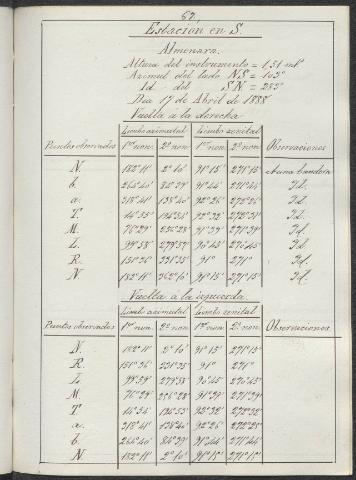 67.
Estación en S.
Almenara.
Altura del instrumento = 1,51 mt
Azimut del lado NS = 103°
Id. del SN = 283°
Dia 17 de Abril de 1888
Vuelta a la derecha
Limbo azimutal Limbo zenital
Puntos observados 1er non. 2º non. 1er non. 2º non. Observaciones
N. 182°11' 2°10' 91°15' 271°15'
b. 91°44' 271°44' Id.
a. 318°41' 138°40' 92°26' 272°26' Id.
T. 14°55' 194°53' 92°32' 272°31' Id.
M. 76°29' 256°28' 91°39' 271°39' Id.
L. 99°58' 279°57' 90°45' 270°45' Id.
R. 151°36' 331°35' 91° 271° Id.
N. 182°11' 362°10' 91°15' 271°15' Id.
Vuelta á la izquierda.
Limbo azimutal Limbo zenital
Puntos observados 1er non. 2º non. 1er non. 2º non. Observaciones
N. 182°11' 2°10' 91°15' 271°15'
R. 151°36' 331°35' 91° 271°
L. 99°59' 279°58' 90°45' 270°45'
M. 76°29' 256°28' 91°39' 271°39'
T. 14°54' 194°53' 92°32' 272°32'
a. 318°41' 138°40' 92°26' 272°25'
b. 264°40' 84°39' 91°44' 271°44'
N. 182°11' 2°10' 91°15' 271°15'